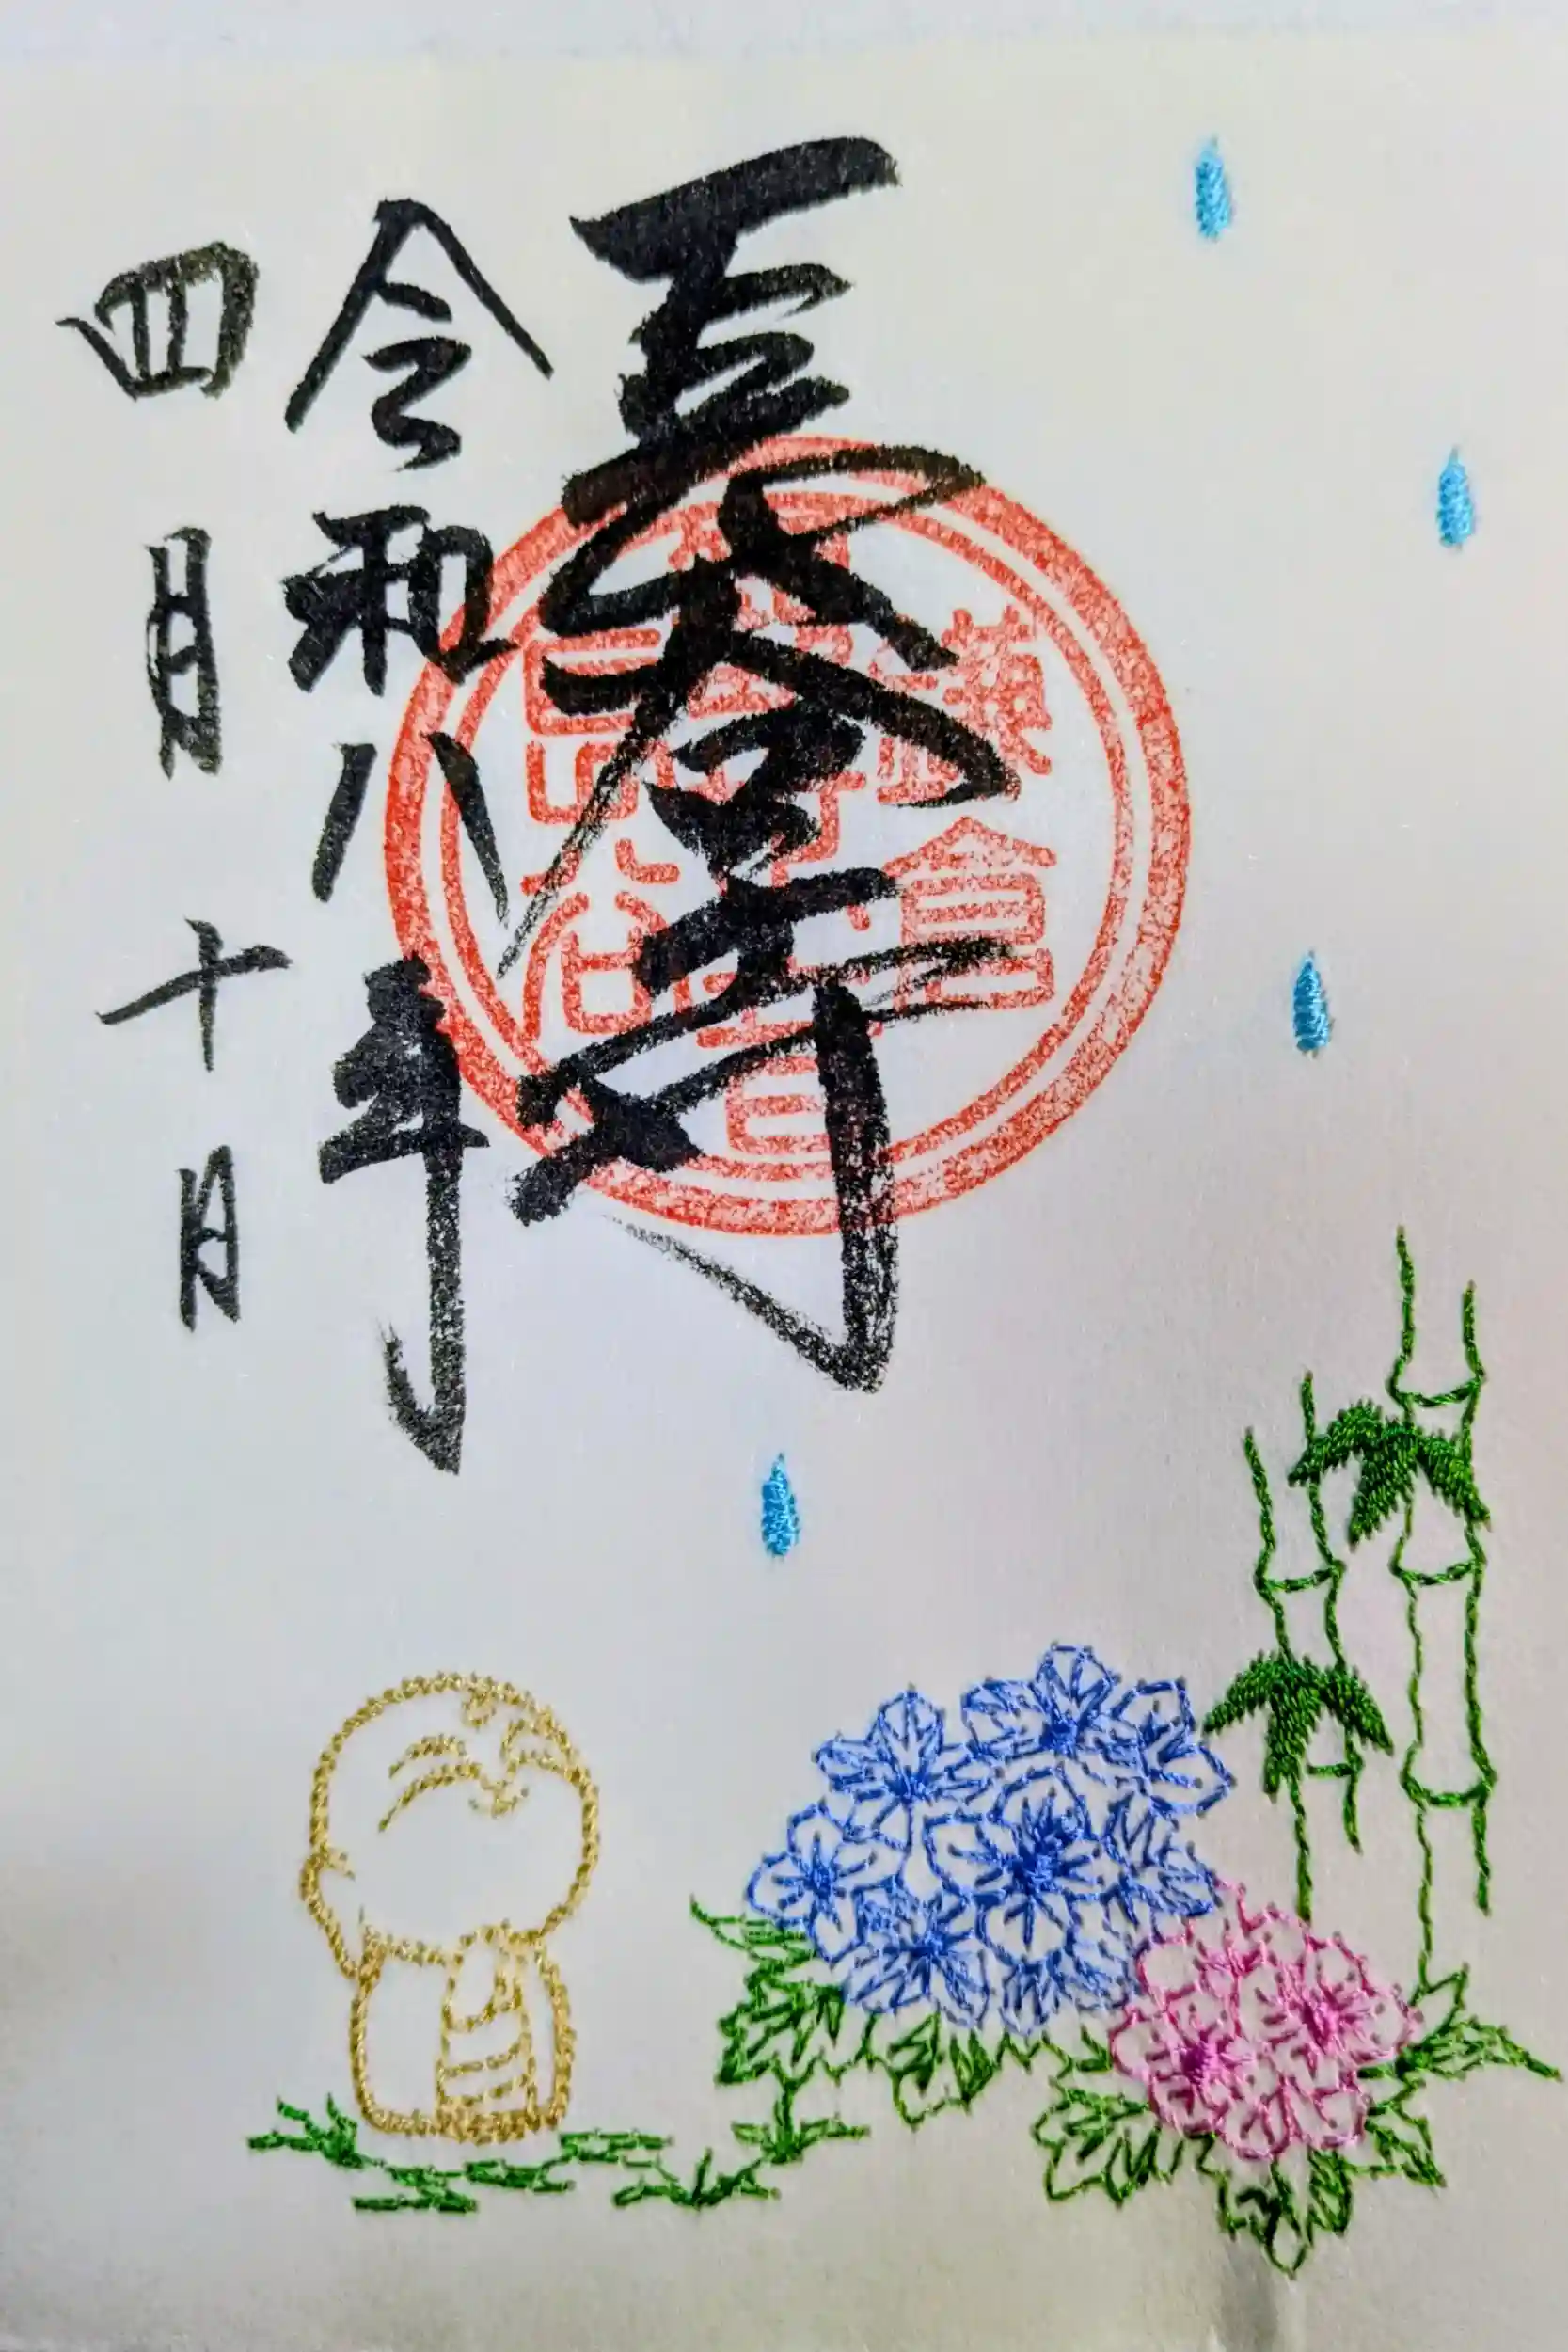 長谷寺
令和八年
四月十日
鎌倉